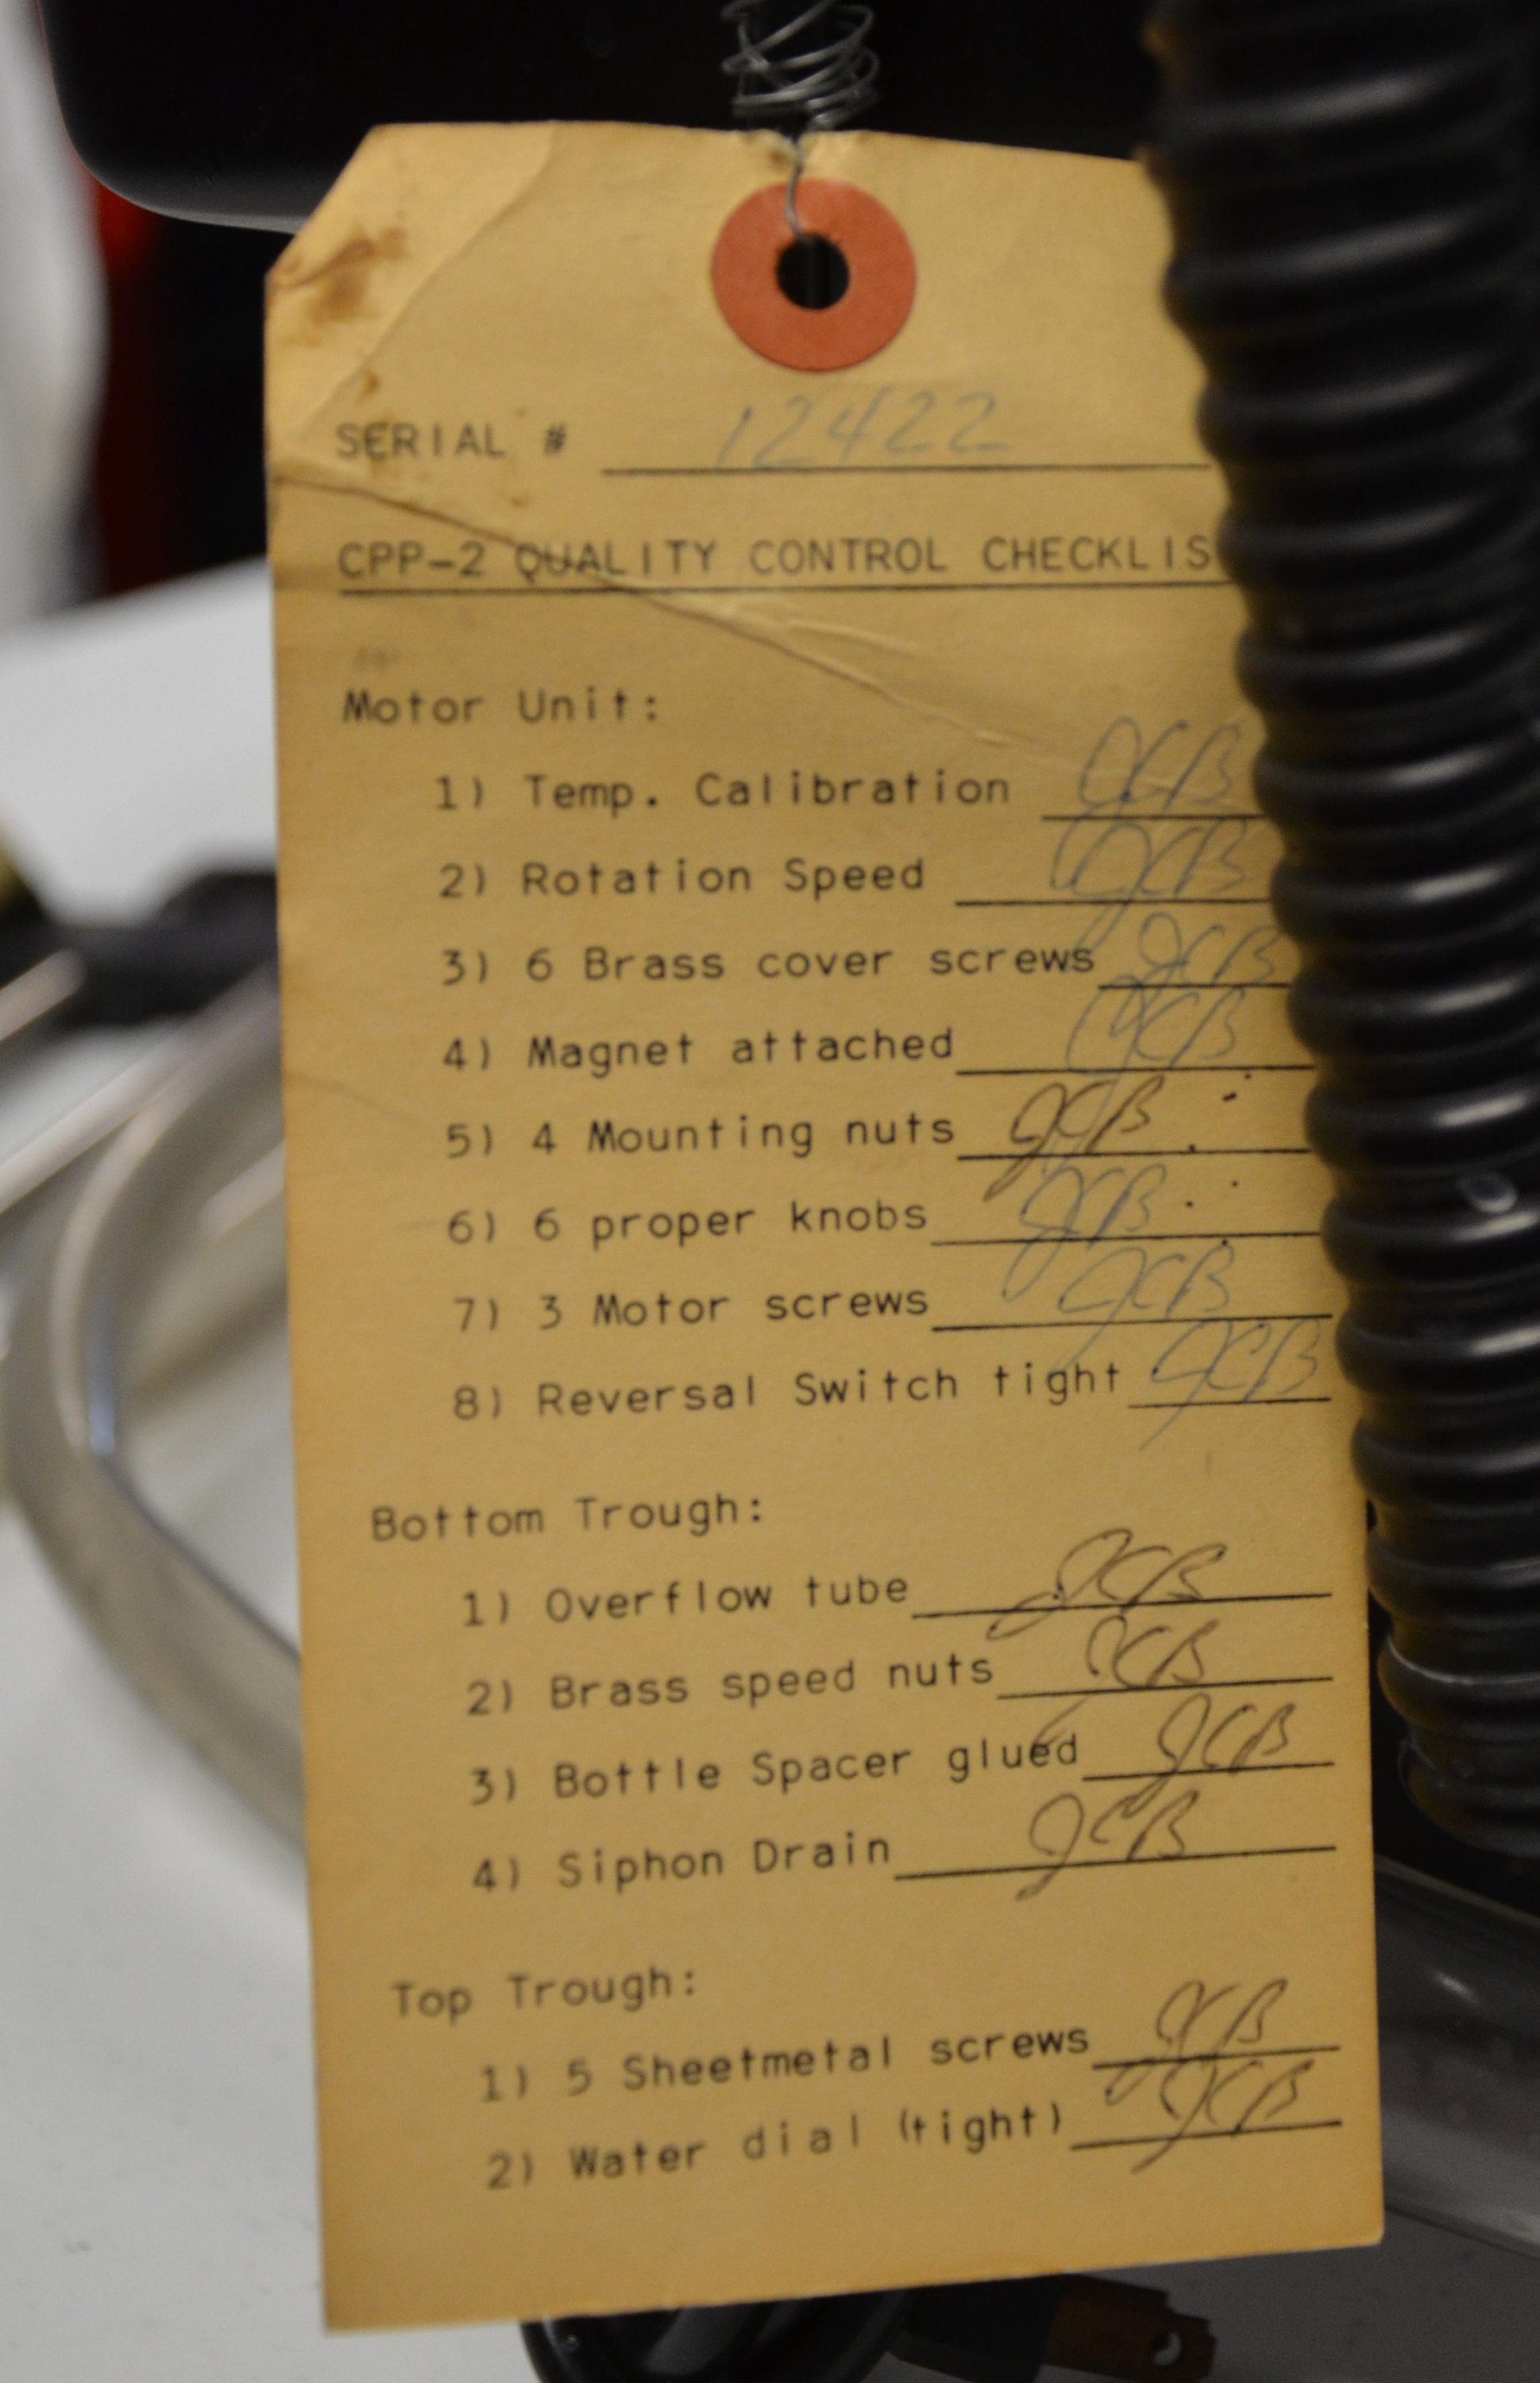 SERIAL # 12422
CPP-2 QUALITY CONTROL CHECKLIS
Motor Unit:
1) Temp. Calibration JCB
2) Rotation Speed JCB
3) 6 Brass cover screws JCB
4) Magnet attached JCB
5) 4 Mounting nuts JCB
6) 6 proper knobs JCB
7) 3 Motor screws JCB
8) Reversal Switch tight JCB
Bottom Trough:
1) Overflow tube JCB
2) Brass speed nuts JCB
3) Bottle Spacer glued JCB
4) Siphon Drain JCB
Top Trough:
1) 5 Sheetmetal screws JCB
2) Water dial (tight) JCB